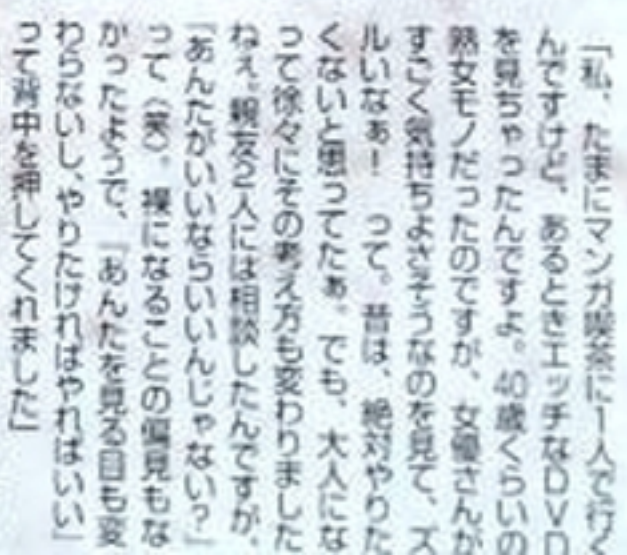 「私、たまにマンガ喫茶に1人で行く
んですけど、あるときエッチなDVD
を見ちゃったんですよ。40歳くらいの
熟女モノだったのですが、女優さんが
すごく気持ちよさそうなのを見て、ズ
ルいなぁ！ って。昔は、絶対やりた
くないと思ってたぁ。でも、大人にな
って徐々にその考え方も変わりました
ねぇ。親友2人には相談したんですが、
『あんたがいいならいいんじゃない？』
って（笑）。裸になることの偏見もな
かったようで、『あんたを見る目も変
わらないし、やりたければやればいい』
って背中を押してくれました」